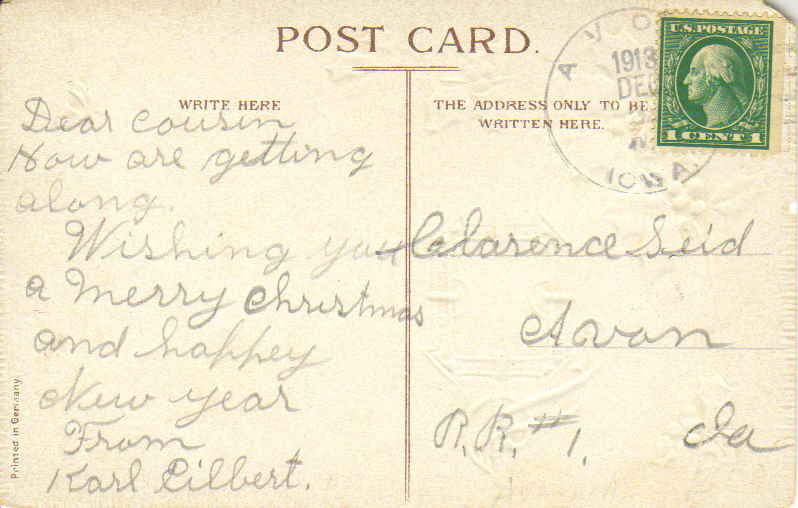 POST CARD.
WRITE HERE
THE ADDRESS ONLY TO BE
WRITTEN HERE.
Dear cousin
How are getting
along.
Wishing you
a Merry Christmas
and happey
New year
From
Karl Gilbert.
Clarence Seid
Avon
R.R. #1. Ia
U.S. POSTAGE
1 CENT 1
AVO
1913
DEC
IOWA
Printed in Germany